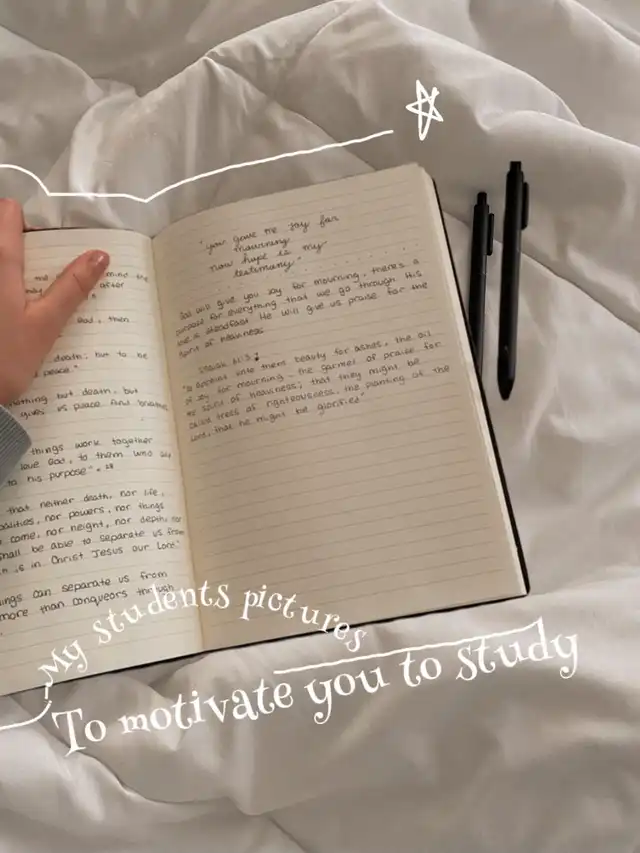 mind the
after
God, then
death; but to be
peace."
nothing but death, but
gives us peace and
things work together
love God, to them who are
to his purpose". 28
that neither death, nor life,
palities, nor powers, nor things
come, nor height, nor depth, nor
shall be able to separate us from
is in Christ Jesus our Lord."
ings can separate us from
more than conquerors through
"you gave me joy for
mourning
now hope is my
testimony"
God will give you joy for mourning, there's a
purpose for everything that we go through. His
love is steadfast. He will give us praise for the
spirit of heaviness
Isaiah 61:3 :
"To appoint unto them beauty for ashes, the oil
of joy for mourning - the garmet of praise for
the spirit of heaviness; that they might be
called trees of righteousness, the planting of the
Lord, that he might be glorified"
My students pictures
To motivate you to study